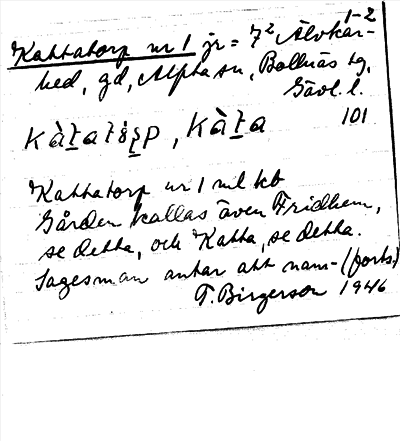 1-2
Kattatorp nr 1 jr = 7² Älvkar-
hed, gd, Alfta sn, Bollnäs tg,
Gävl. l.
101
Kàṯatåṣp, Kàṯa
Kattatorp nr 1 ml kb
Gården kallas även Fridhem,
se detta, och Katta, se detta.
Sagesman antar att nam- (forts.)
T. Birgerson 1946